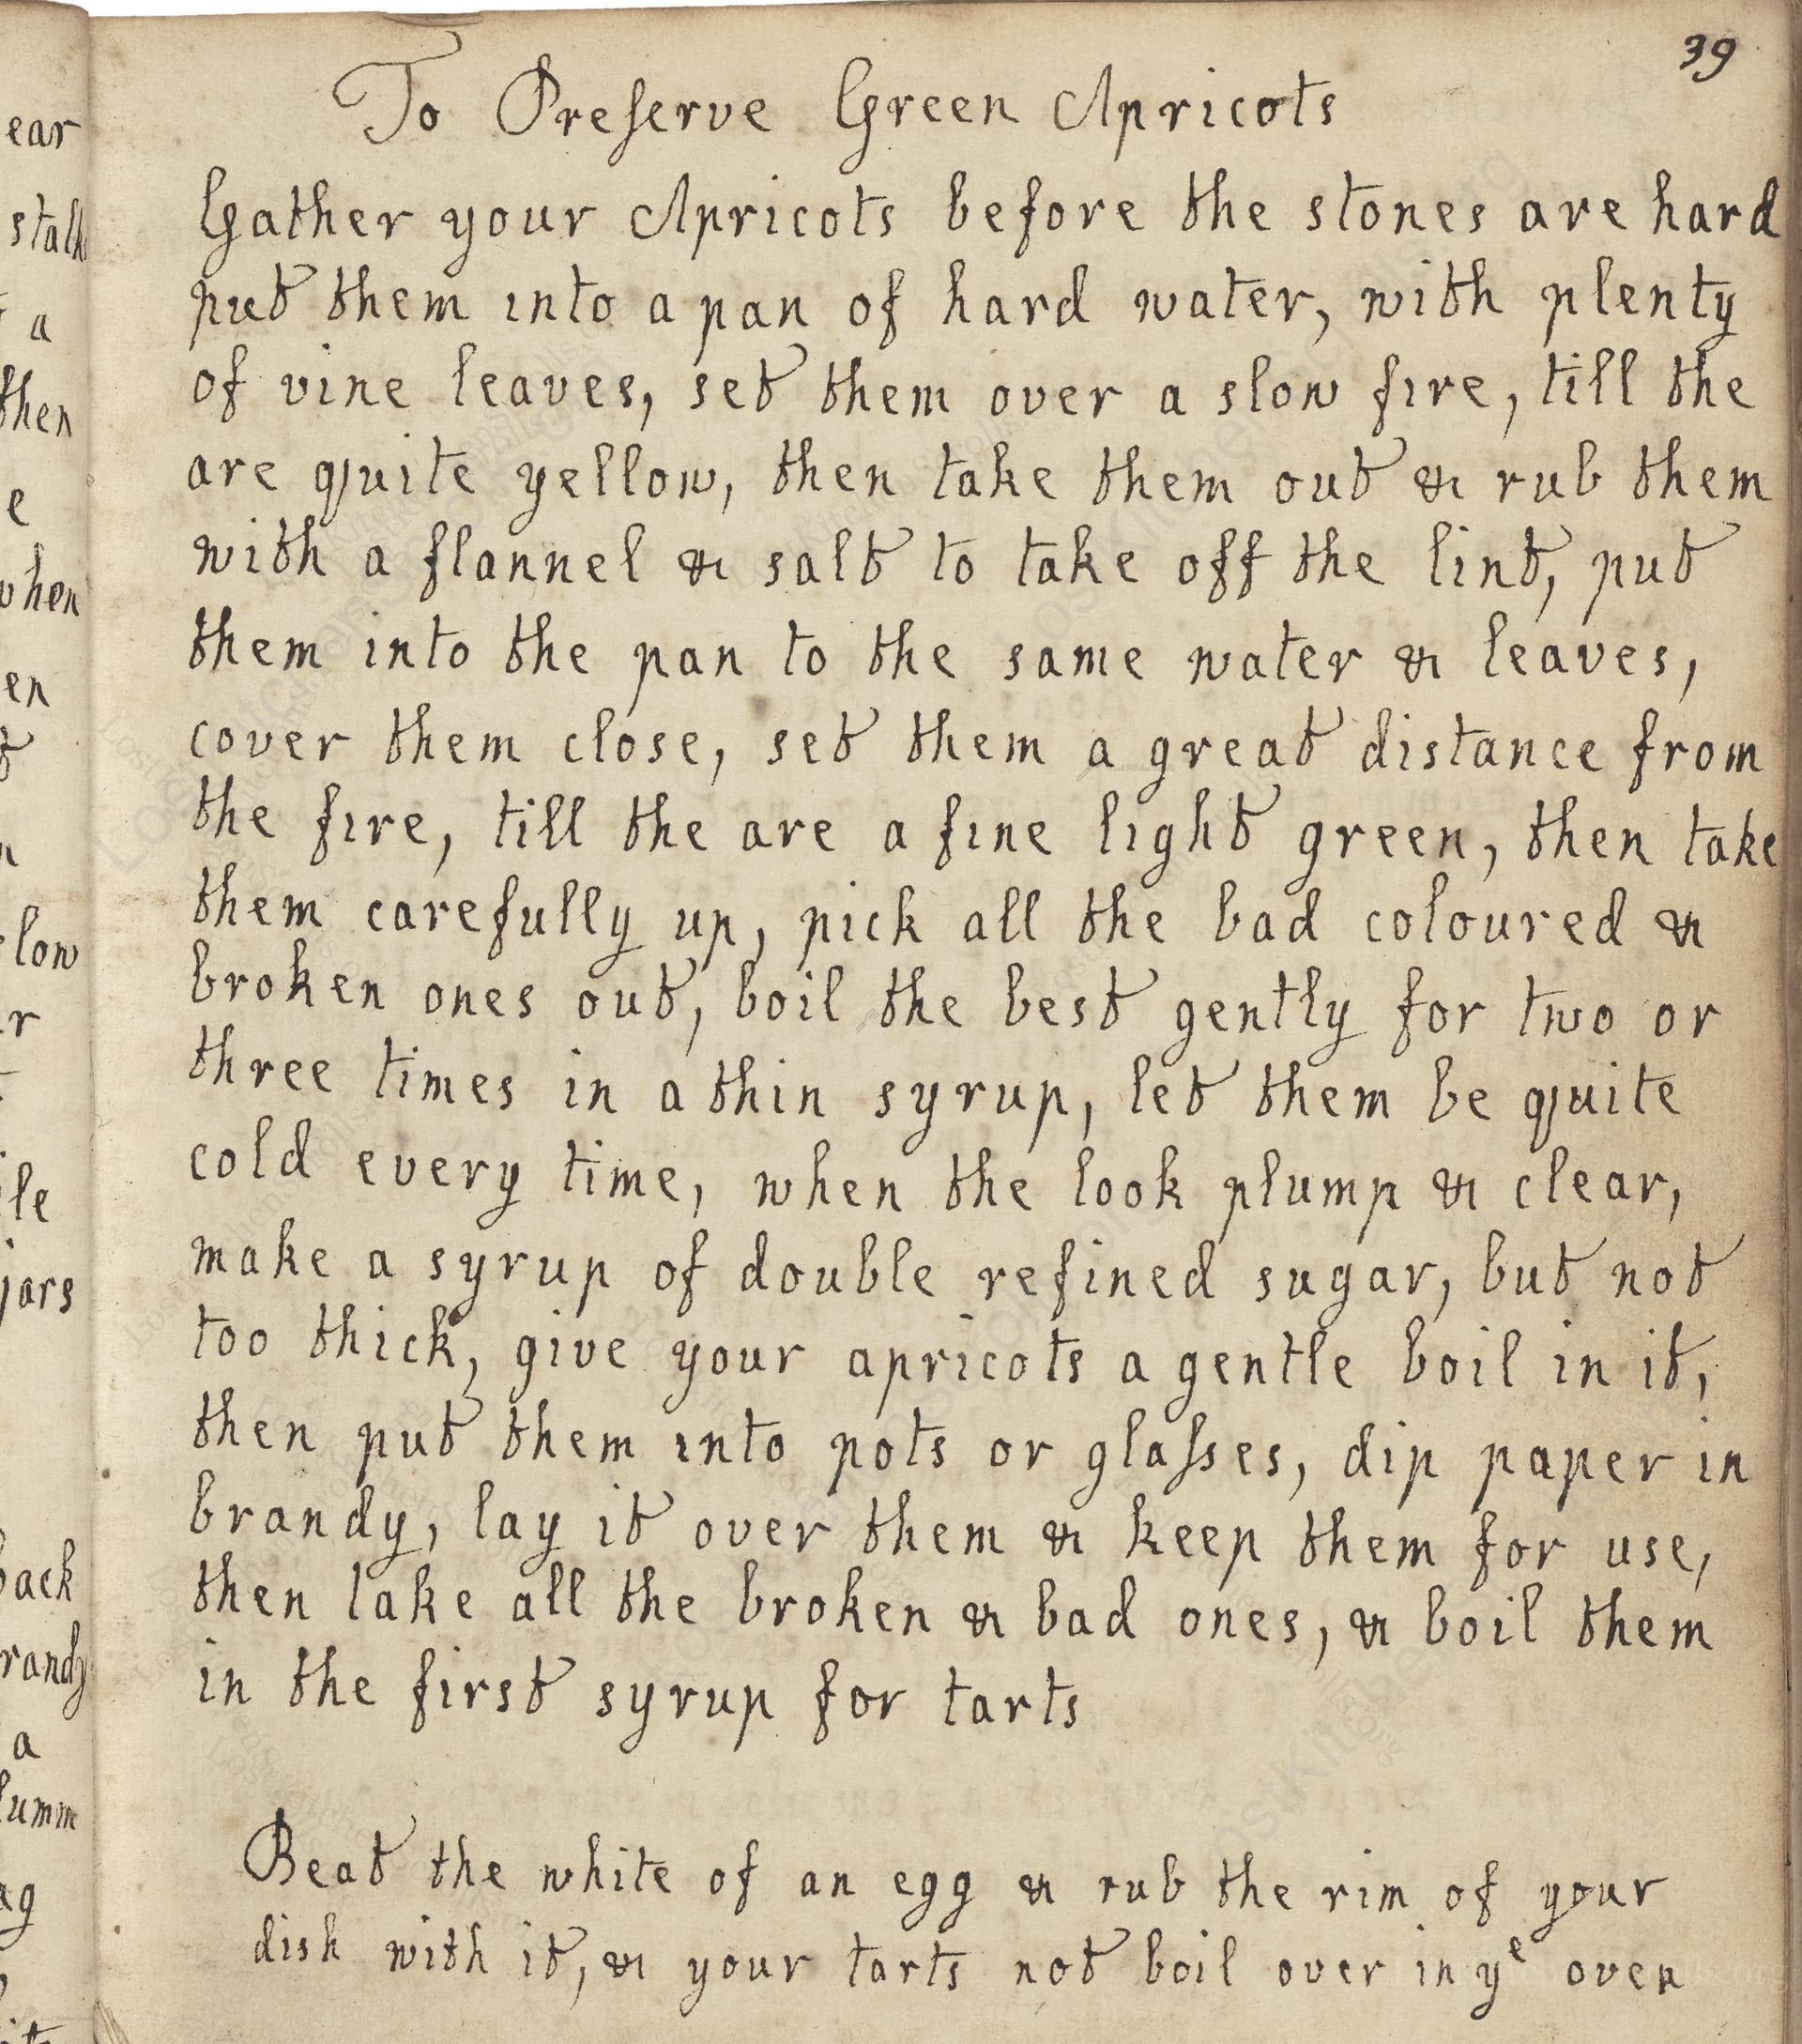 39
To Preſerve Green Apricots
Gather your Apricots before the stones are hard
put them into a pan of hard water, with plenty
of vine leaves, set them over a slow fire, till the
are quite yellow, then take them out & rub them
with a flannel & salt to take off the lint, put
them into the pan to the same water & leaves,
cover them close, set them a great distance from
the fire, till the are a fine light green, then take
them carefully up, pick all the bad coloured &
broken ones out, boil the best gently for two or
three times in a thin syrup, let them be quite
cold every time, when the look plump & clear,
make a syrup of double refined sugar, but not
too thick, give your apricots a gentle boil in it,
then put them into pots or glaſses, dip paper in
brandy, lay it over them & keep them for use,
then take all the broken & bad ones, & boil them
in the first syrup for tarts
Beat the white of an egg & rub the rim of your
dish with it, & your tarts not boil over in yᵉ oven
ear
stalk
a
then
e
when
en
low
r
le
jars
back
randy
a
lumm
ag